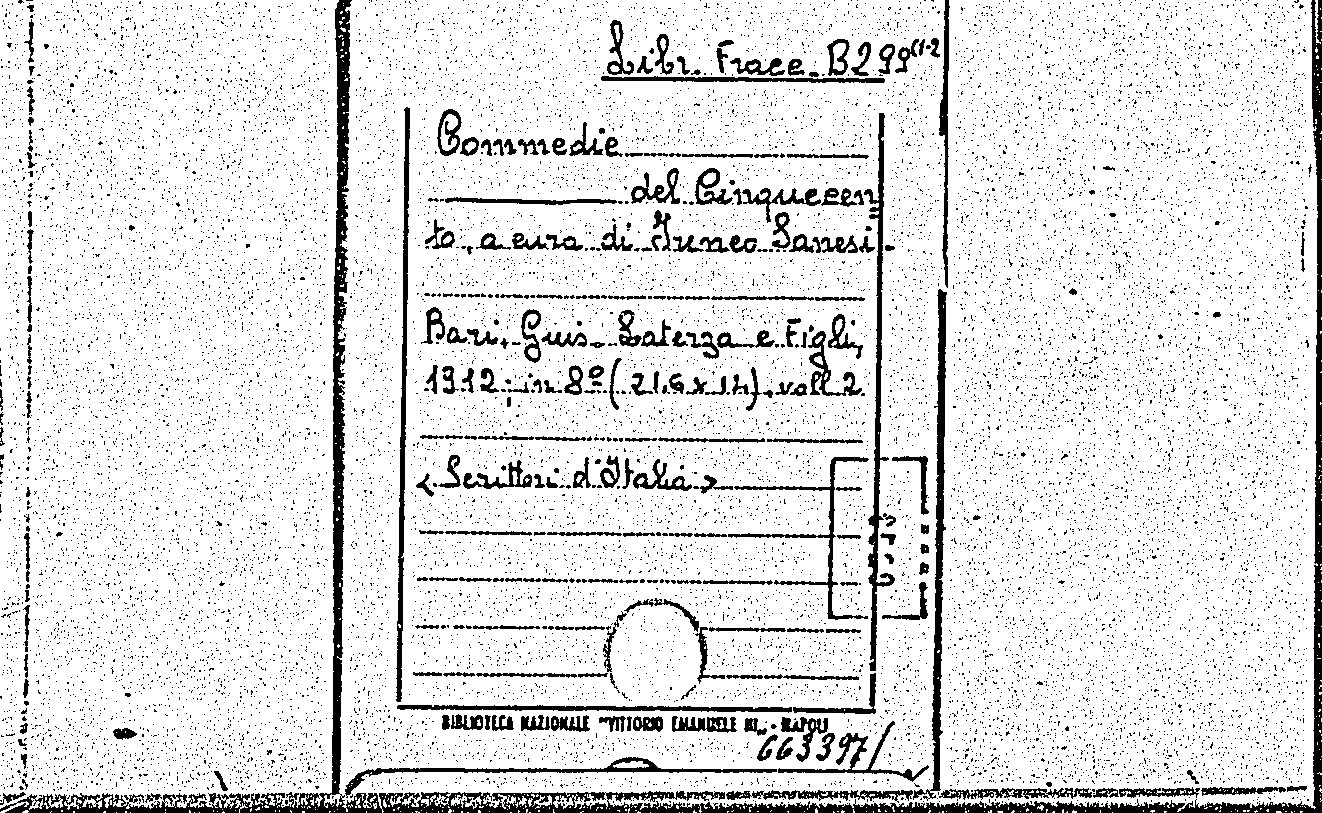 Libr. Frace. B299(1-2
Commedie
del Cinquecen=
to, a cura di Ireneo Sanesi.
Bari, Gius. Laterza e Figli,
1912; in 8º (21.6 x 14). voll 2
<Scrittori d'Italia>
BIBLIOTECA NAZIONALE "VITTORIO EMANUELE III" - NAPOLI
663397/